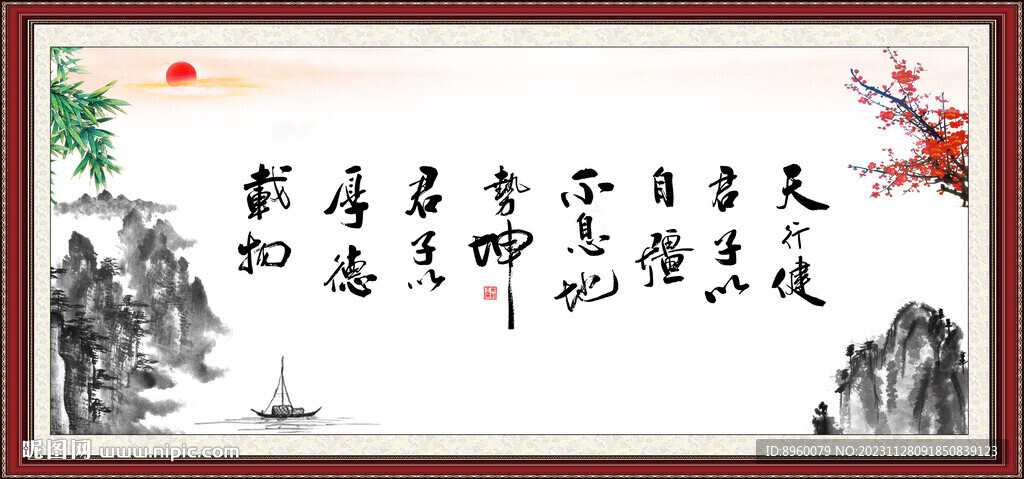 天行健
君子以
自彊
不息地
勢坤
君子以
厚德
載物
昵图网 www.nipic.com
ID:8960079 NO:20231128091850839123